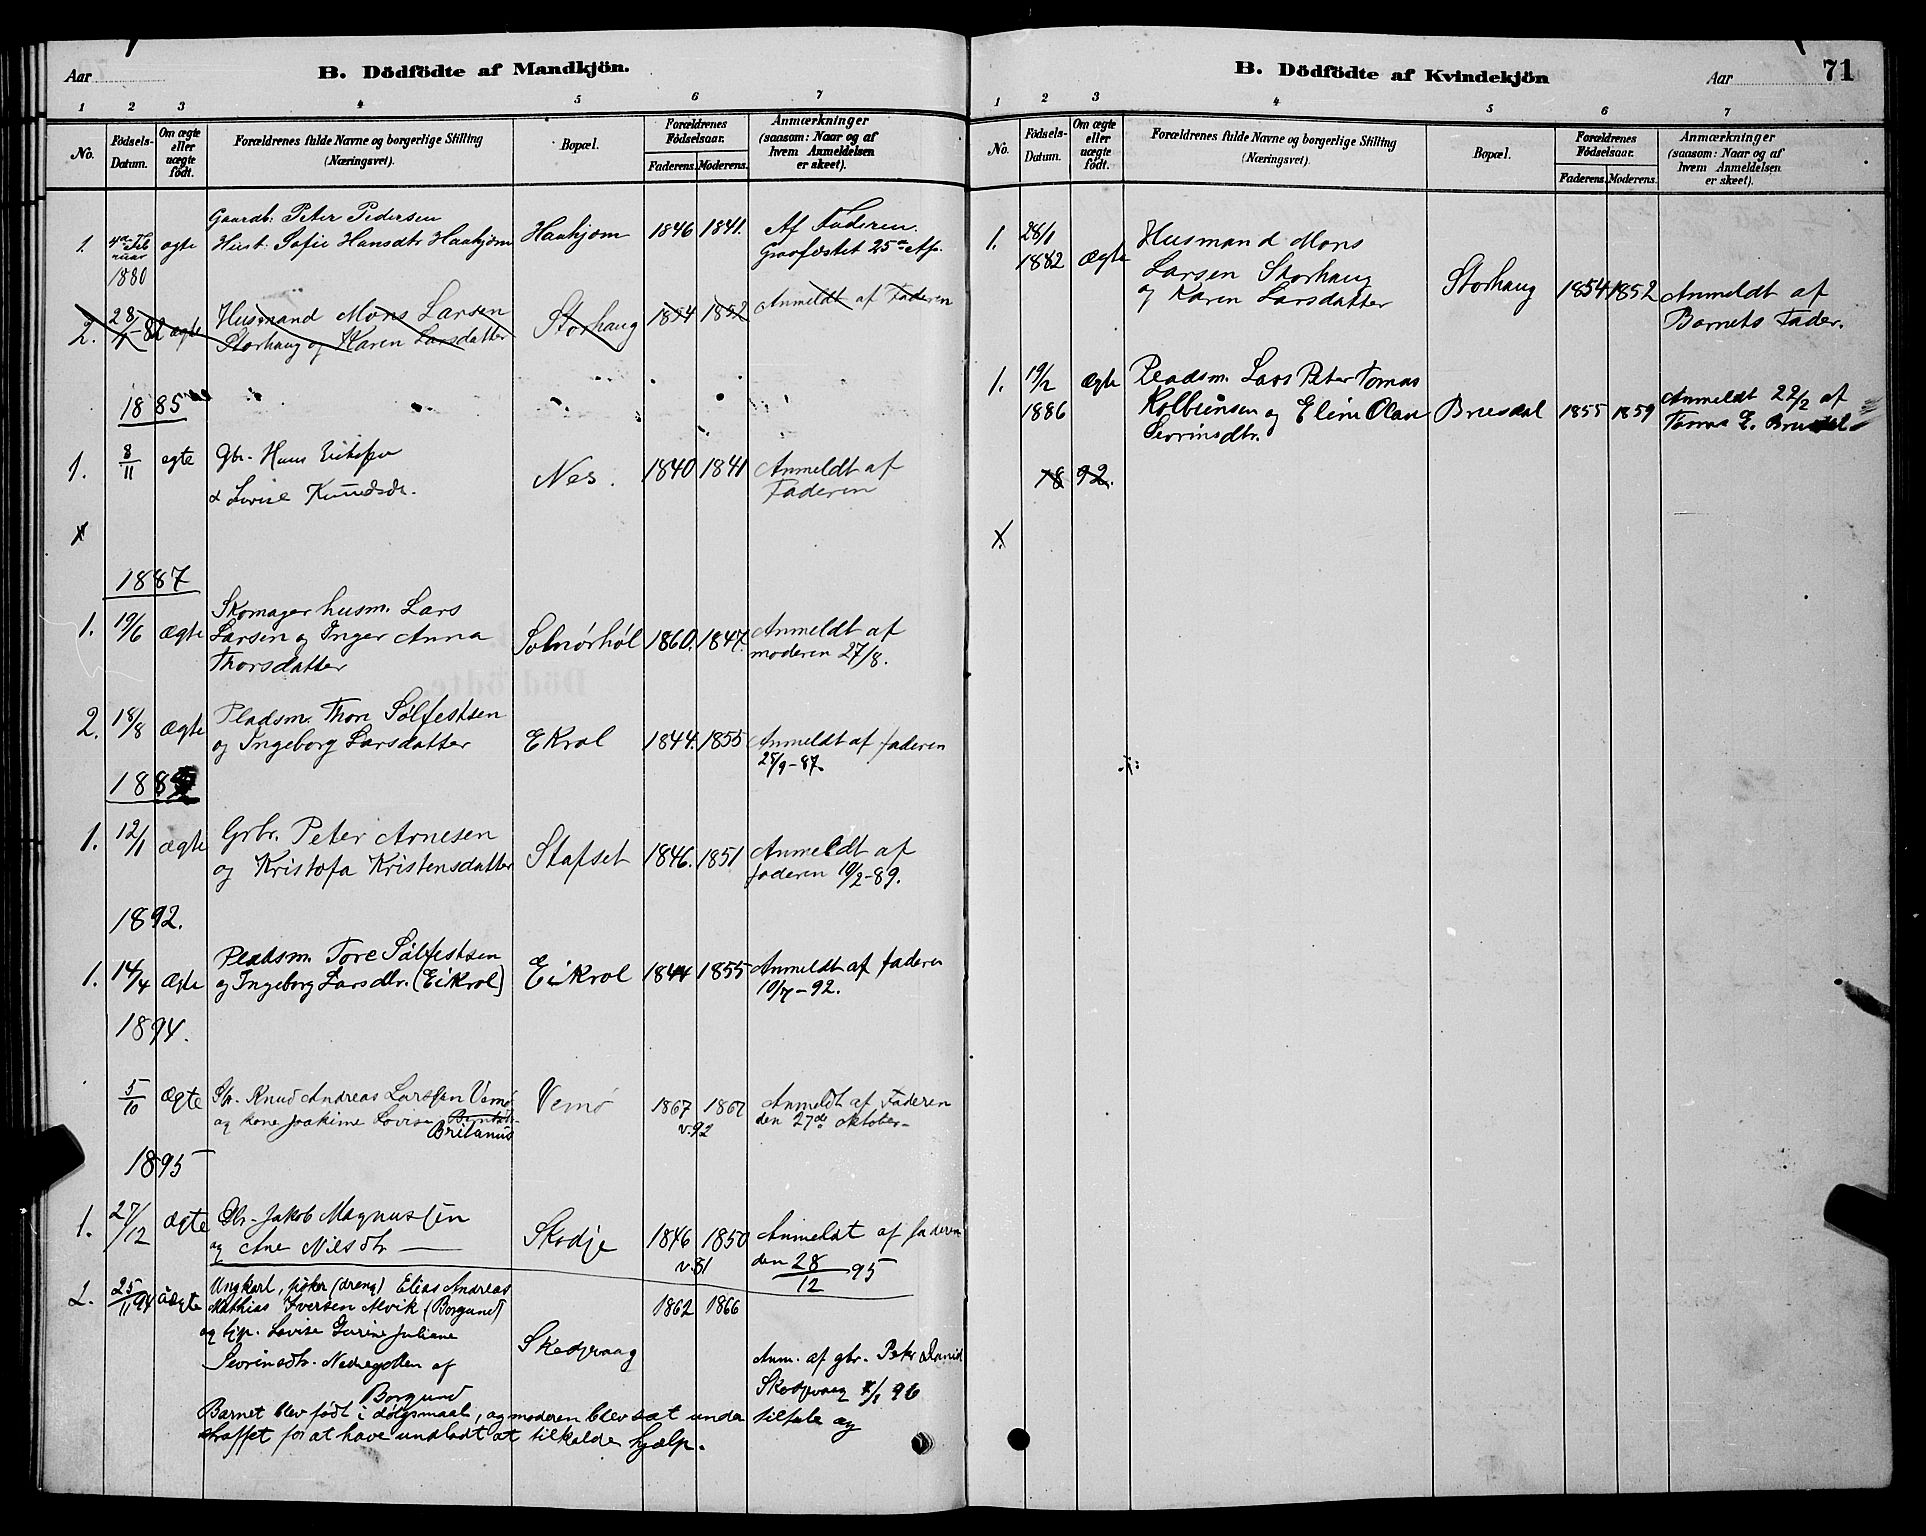 Aar
B. Dödfödte af Mandkjön.
1 2 3 4 5 6 7
No.
Födsels-Datum.
Om ægte eller uægte födt.
Forældrenes fulde Navne og borgerlige Stilling
(Næringsvei).
Bopæl.
Forældrenes Födselsaar.
Faderens. Moderens.
Anmærkninger
(saasom: Naar og af
hvem Anmeldelsen
er skeet).
Gaardb. Peter Pedersen
1. 4de Feb ruar 1880 ægte Hust. Sofie Hansdtr Haahjem Haahjem 1846 1841. Af Faderen.
Graafæstet 25de
2. 28/1-82 ægte Husmand Mons Larsen Storhaug 1854 1852 Anmeldt af Faderen
Storhaug og Karen Larsdatter
1885
1. 8/11 egte Gbr. Hans
& Lovise Knudsdr. Nes. 1840 1841 Anmeldt af
Faderen
X
1887
Skomager husm. Lars
1. 19/6 Ægte Larsen og Inger Anna Solnørhöl 1860. 1847. Anmeldt af
Thorsdatter moderen 27/8.
2. 18/8 Ægte Pladsm. Thore Sölfestsen
og Ingeborg Larsdatter Ekrol 1844. 1855 Anmeldt af faderen
28/9-87.
1889
1. 12/1 ægte Grbr. Peter Arnesen
og Kristofa Kristensdatter Stafset 1846. 1851 Anmeldt af
faderen 10/2-89.
1892.
1. 14/4 Ægte Pladsm. Tore Sölfestsen
og Ingeborg Larsdtr. (Eikrol) Eikrol 1844 1855 Anmeldt af faderen
10/7-92.
1894.
5/10 Ægte Knud Andreas Larssen Vemö Vemö 1867 1867 Anmeldt af Faderen
og kone Joakime Lovise v.92 den 27de oktober-
Britanus
1895
1. 27/12 ægte Gbr. Jakob Magnussen
og Ane Nilsdtr Skodje 1846 1850 Anmeldt af faderen
v.81 den 28/12 95
2. 25/11 94 uægte Ungkarl, fisker (dreng) Elias Andreas
Mathias Iversen Alvik (Borgund) 1862 1866
og Lovise Gurine Juliane
Sevrinsdtr. af Skodjevaag Anm. af gbr. Peter David
Borgund Skodjevaag 96
Barnet blev födt i dölgsmaal, og moderen blev sat under tiltale og
straffet for at have undladt at tilkalde hjælp.
B. Dödfödte af Kvindekjön
Aar
71
1 2 3 4 5 6 7
No.
Födsels-Datum.
Om ægte eller uægte födt.
Forældrenes fulde Navne og borgerlige Stilling
(Næringsvei).
Bopæl.
Forældrenes Födselsaar.
Faderens. Moderens.
Anmærkninger
(saasom: Naar og af
hvem Anmeldelsen
er skeet).
1. 28/1 1882 Ægte Husmand Mons
Larsen Storhaug
og Karen Larsdatter Storhaug 1854 1852 Anmeldt af
Barnets Fader.
1. 19/2 1886 Ægte Pladsm. Lars Peter Tomas
Kolbeinsen og Eline Olave Brusdal 1855 1859 Anmeldt 22/2 af
Sevrinsdtr. Tomas E. Brusdal
1892.
X